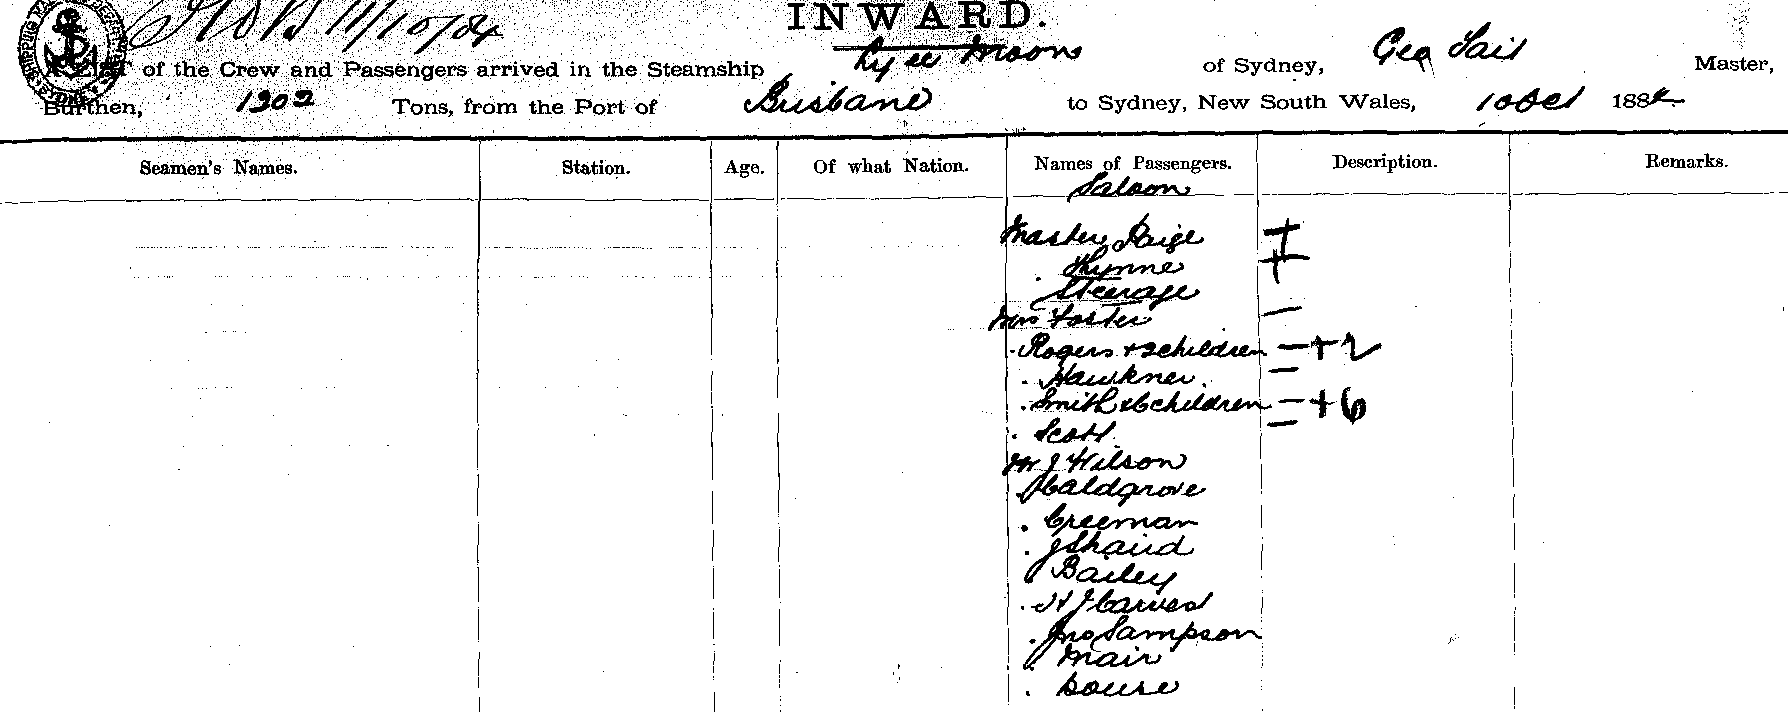 11/10/84
INWARD.
of the Crew and Passengers arrived in the Steamship Ly ee Moon of Sydney, Geo Master,
Burthen, 1302 Tons, from the Port of Brisbane to Sydney, New South Wales, 10 Oct 1884
Seamen's Names. Station. Age. Of what Nation. Names of Passengers. Description. Remarks.
Saloon
Master Paige +
. Thynne +
Steerage
Mrs Foster —
. Rogers + 2 children — + 2
. Hawkner. —
. Smith & 6 children — + 6
. Scott —
Mr J Wilson
Caldgrove
. Creeman
. J Shaud
Bailey
. H J
. Jno Sampson
Mair
. Douse